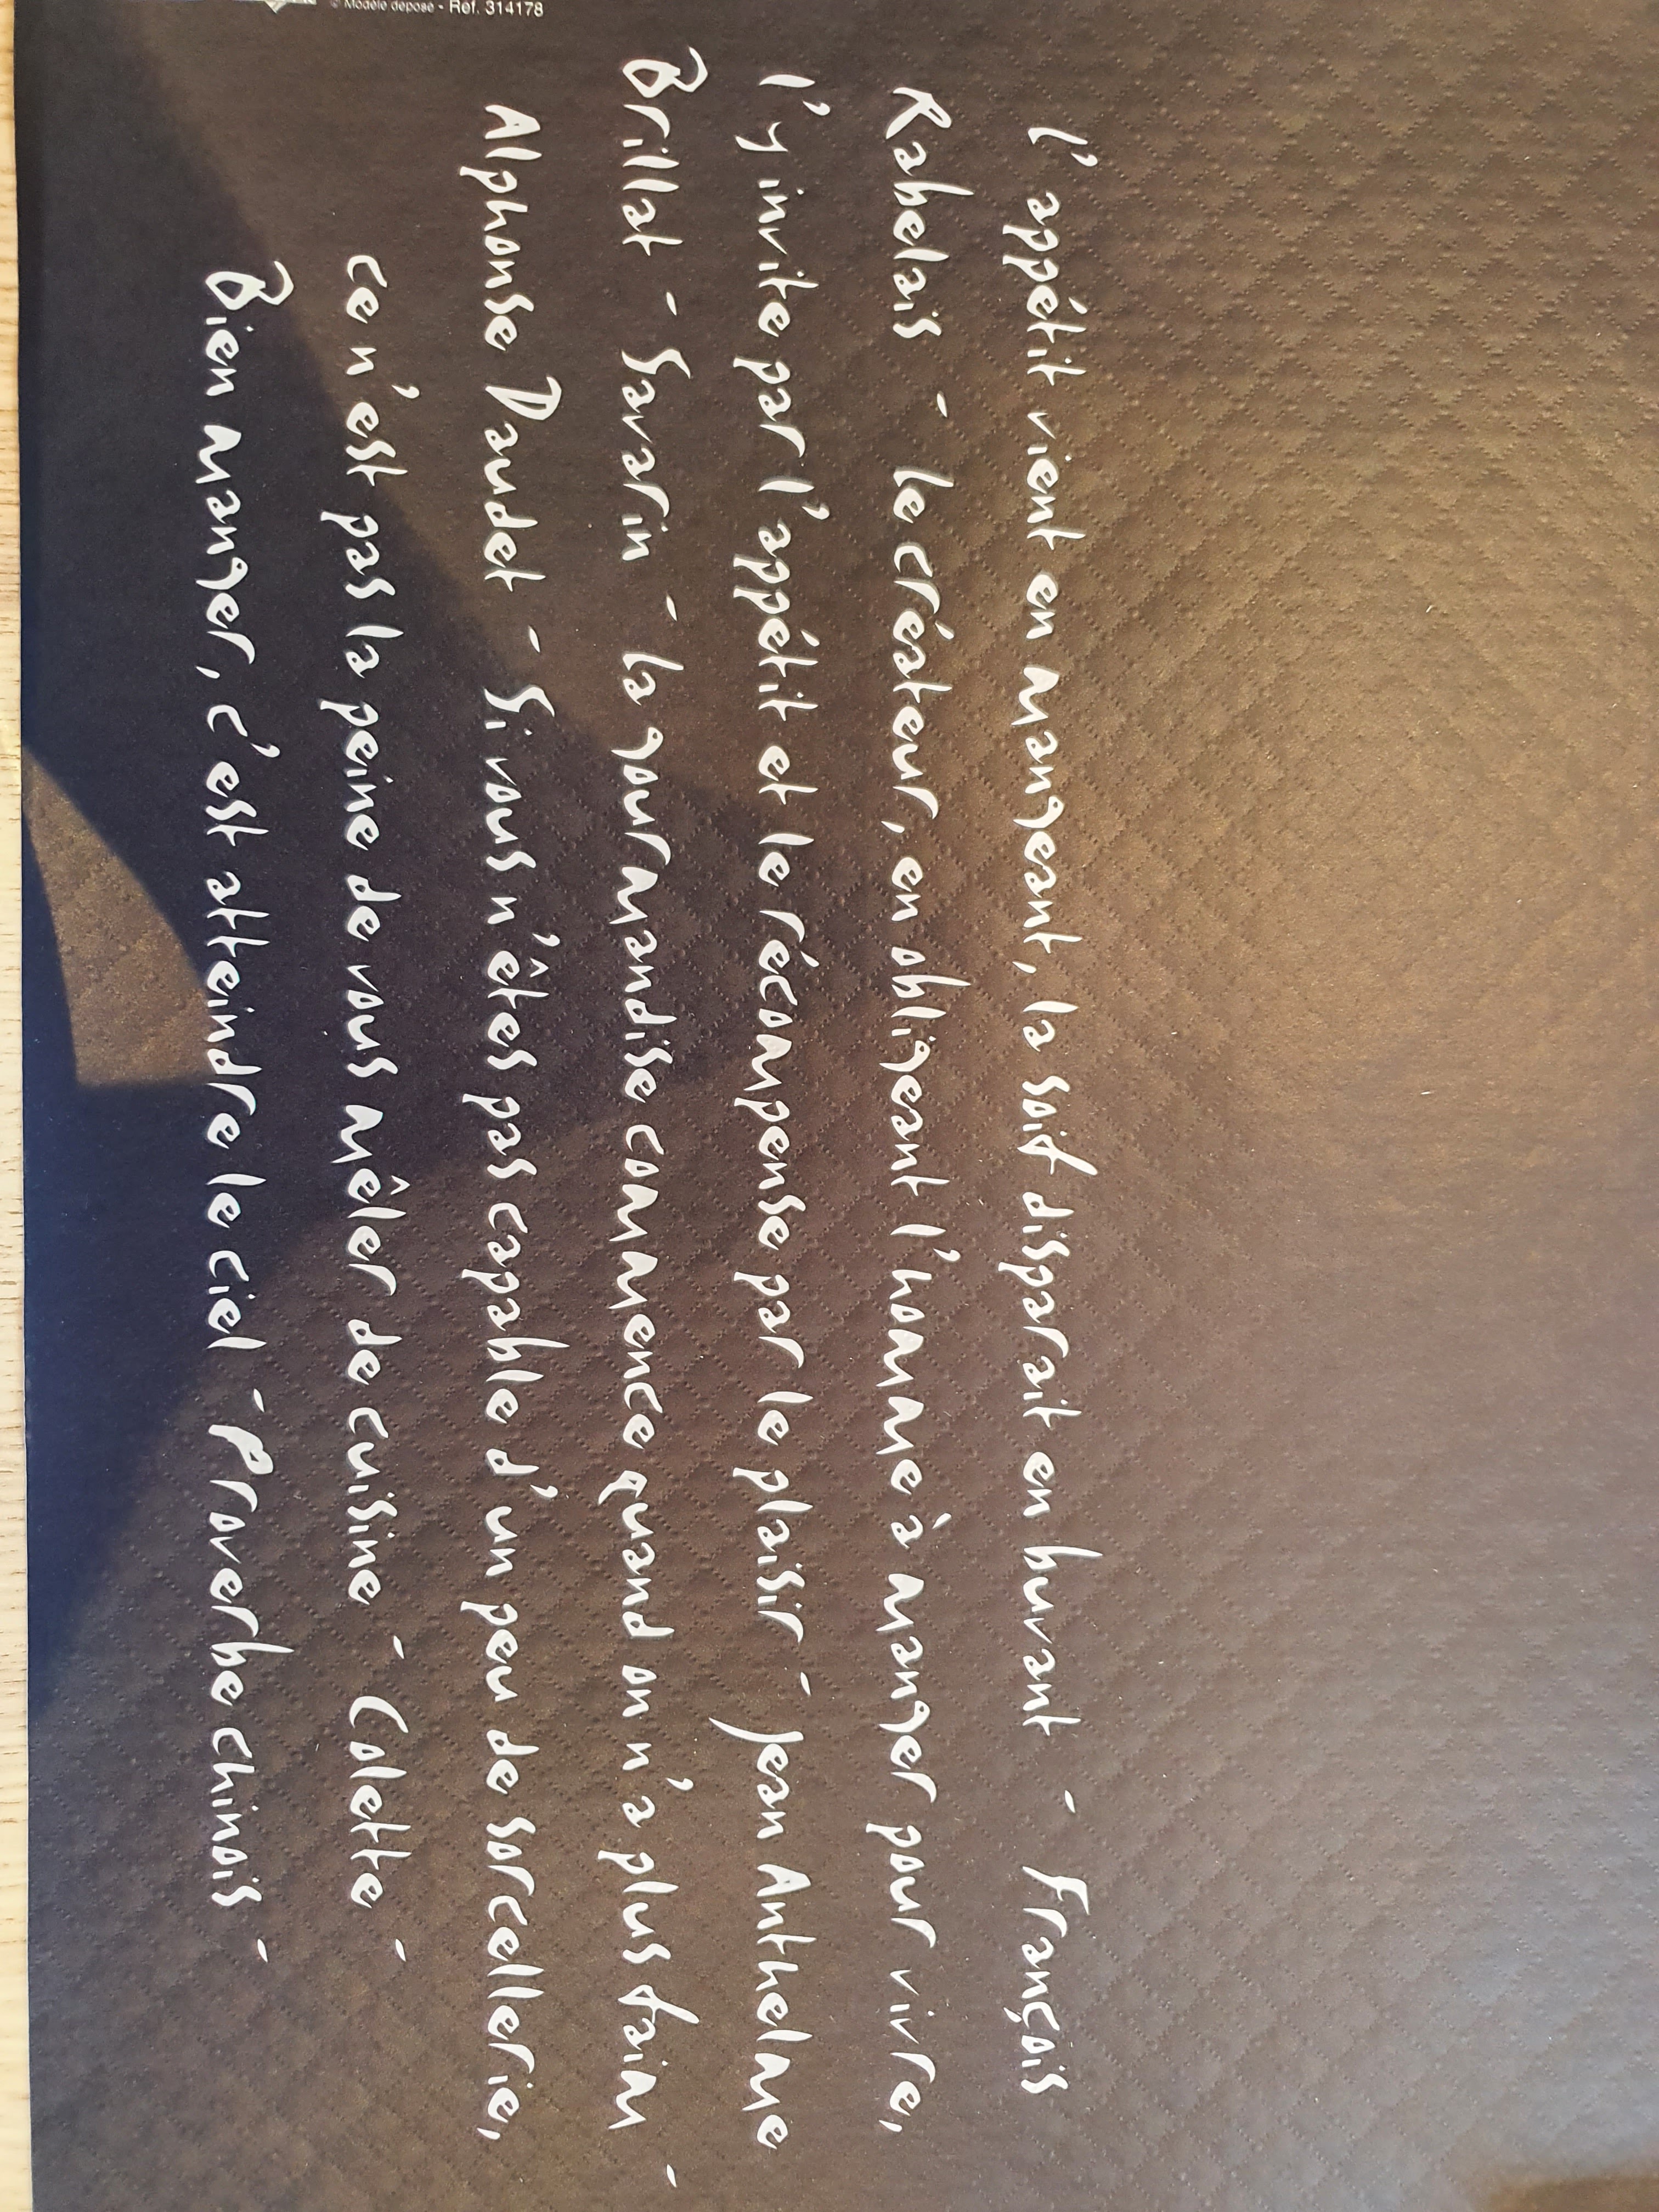 L'appétit vient en mangeant, la soif disparait en buvant - François
Rabelais - Le créateur, en obligeant l'homme à manger pour vivre,
l'y invite par l'appétit et le récompense par le plaisir - Jean Anthelme
Brillat - Savarin - La gourmandise commence quand on n'a plus faim -
Alphonse Daudet - Si vous n'êtes pas capable d'un peu de sorcellerie,
ce n'est pas la peine de vous mêler de cuisine - Colette -
Bien manger, c'est atteindre le ciel - Proverbe chinois -
© Modèle déposé - Réf. 314178